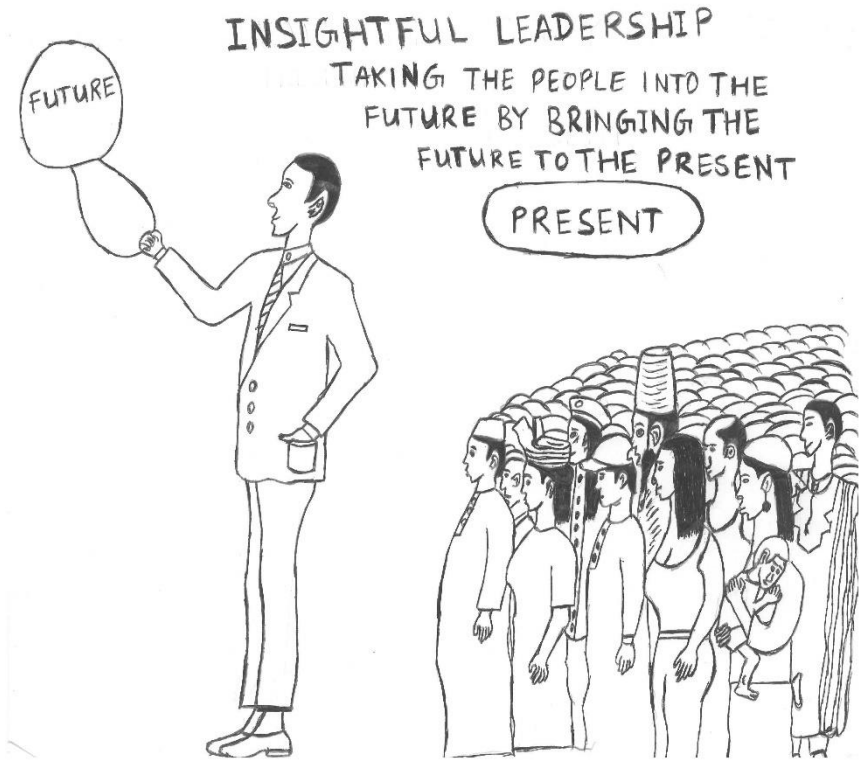 INSIGHTFUL LEADERSHIP
TAKING THE PEOPLE INTO THE
FUTURE BY BRINGING THE
FUTURE TO THE PRESENT
FUTURE
PRESENT